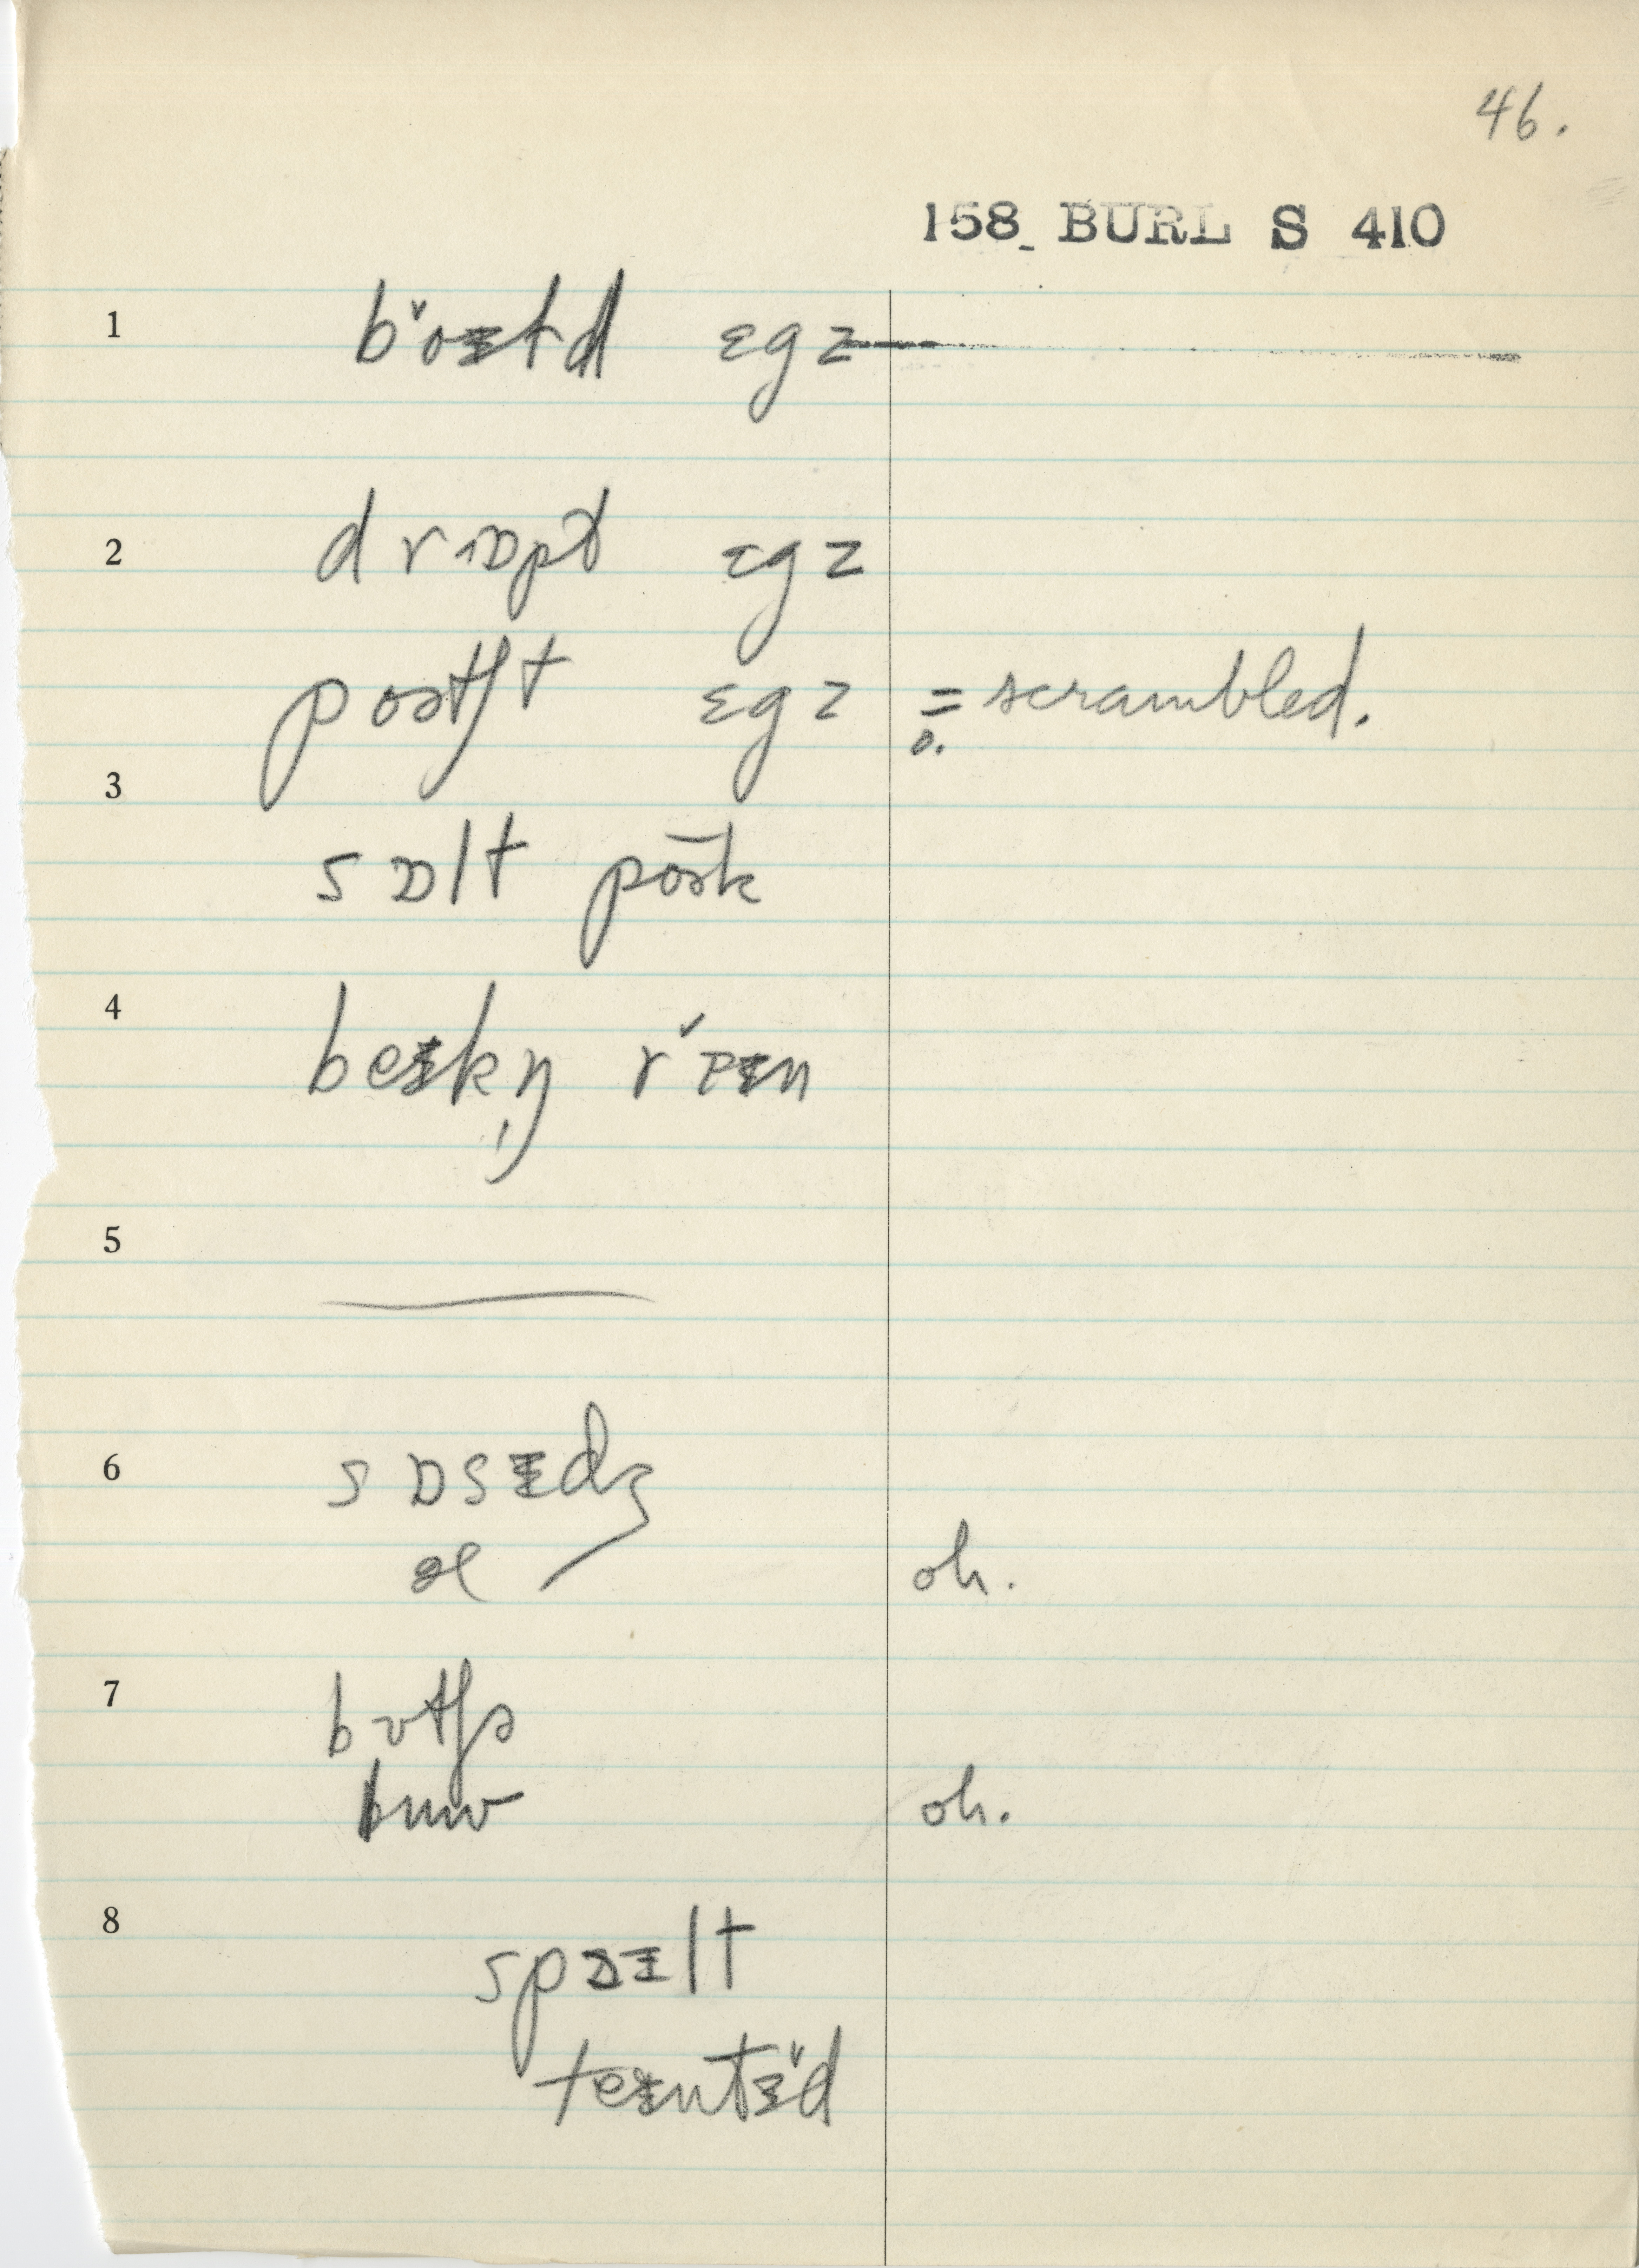 46.
158 BURL S 410
1 bɔ̌ɪld ɛgz
2 drɒpt ɛgz
poətʃt ɛgz = scrambled.
o.
3
sɒlt pōək
4 beɪkŋ̩ rɪ̌ɪn
5
6 sɒsɪdʒ
oh.
7 bʊtʃə
oh.
8 spɒɪlt
teɪntɪ̌d